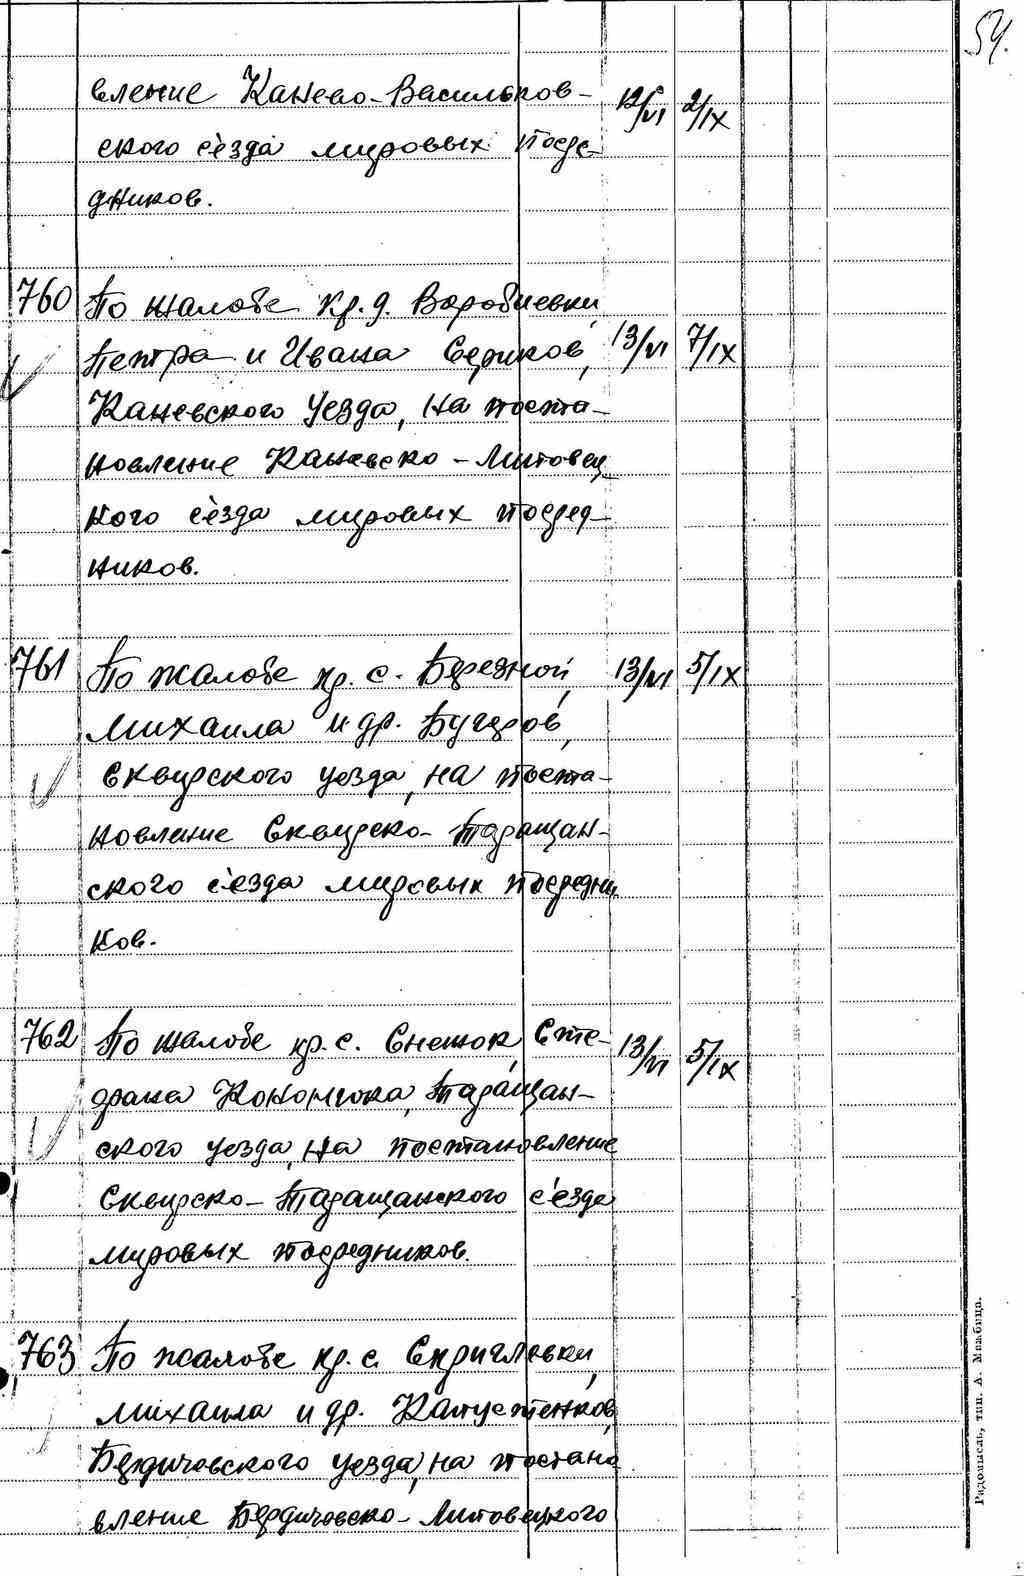 54.
вление Канево-Васильков- 12/VI 2/IX
ского с'езда мировых посре-
дников.
760 По жалобе кр. д. Воробиевки,
Петра и Ивана Сериков, 13/VI 7/IX
Каневского уезда, на поста-
новление Каневско-Липовец
кого с'езда мировых посред-
ников.
761 По жалобе кр. с. Бережной, 13/VI 5/IX
Михаила и др. Бугеров,
Сквирского уезда, на поста-
новление Сквирско-Таращан-
ского с'езда мировых посредни
ков.
762 По жалобе кр. с. Снежок, Сте- 13/VI 5/IX
драка Кононюка, Таращан-
ского уезда, на постановление
Сквирско-Таращанского с'езда
мировых посредников.
763 По жалобе кр. с. Скригловки,
Михаила и др. Капустенков,
Бердичовского уезда, на постано
вление Бердичовско-Липовецкого
Радомысль, тип. А. Манбица.